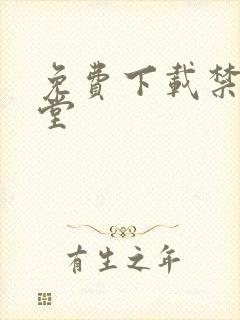 免费下載禁
堂
有生之年